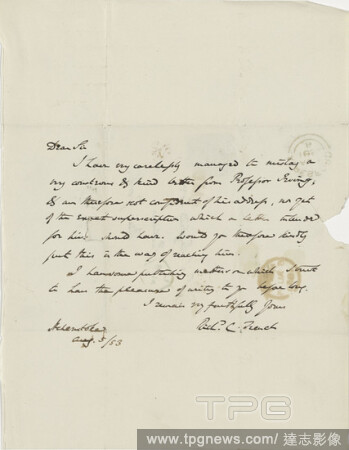 Dear Sir
I have very carelessly managed to mislay a
very courteous & kind letter from Professor Irving,
& am therefore not confident of his address, nor yet
of the exact superscription which a letter intended
for him should have. Would you therefore kindly
put this in the way of reaching him.
I have some publishing matter on which I
to have the pleasure of writing to you before long.
I remain very faithfully yours
Richd. C. Trench
Aug. 8/53
TPG
www.tpgnews.com / 達志影像